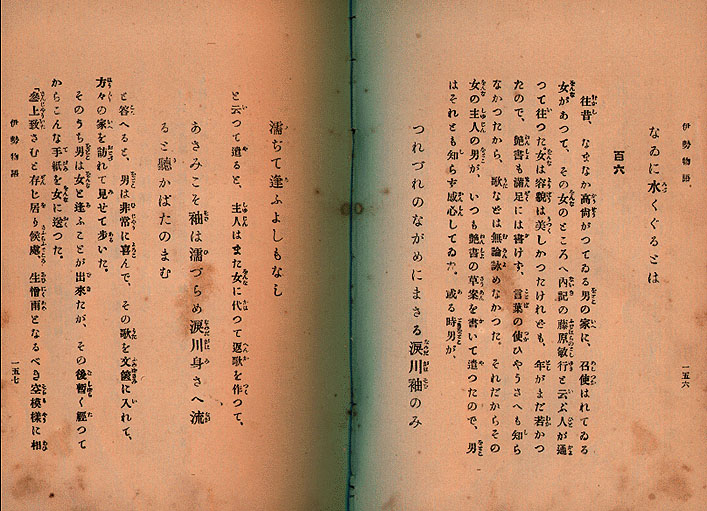 伊勢物語
一五六
なゐに水くぐるとは
百六
往昔、なまなか高尚がつてゐる男の家に、召使はれてゐる
女があつて、その女のところへ内記の藤原敏行と云ふ人が通
つて往つた女は容貌は美しかつたけれども、年がまだ若かつ
たので、艶書も満足には書けず、言葉の使ひやうさへも知ら
なかつたから、歌などは無論詠めなかつた。それだからその
女の主人の男が、いつも艶書の草案を書いて遣つたので、男
はそれとも知らず感心してゐた。或る時男が、
つれづれのながめにまさる涙川袖のみ
濡ぢて逢ふよしもなし
と云つて遣ると、主人はまた女に代つて返歌を作つて、
あさみこそ袖は濡づらめ涙川身さへ流
ると聽かばたのまむ
と答へると、男は非常に喜んで、その歌を文篋に入れて、
方々の家を訪れて見せて歩いた。
そのうち男は女と逢ふことが出來たが、その後暫く經つて
からこんな手紙を女に送つた。
『參上致さむと存じ居り候處、生憎雨となるべき空模樣に相
伊勢物語
一五七